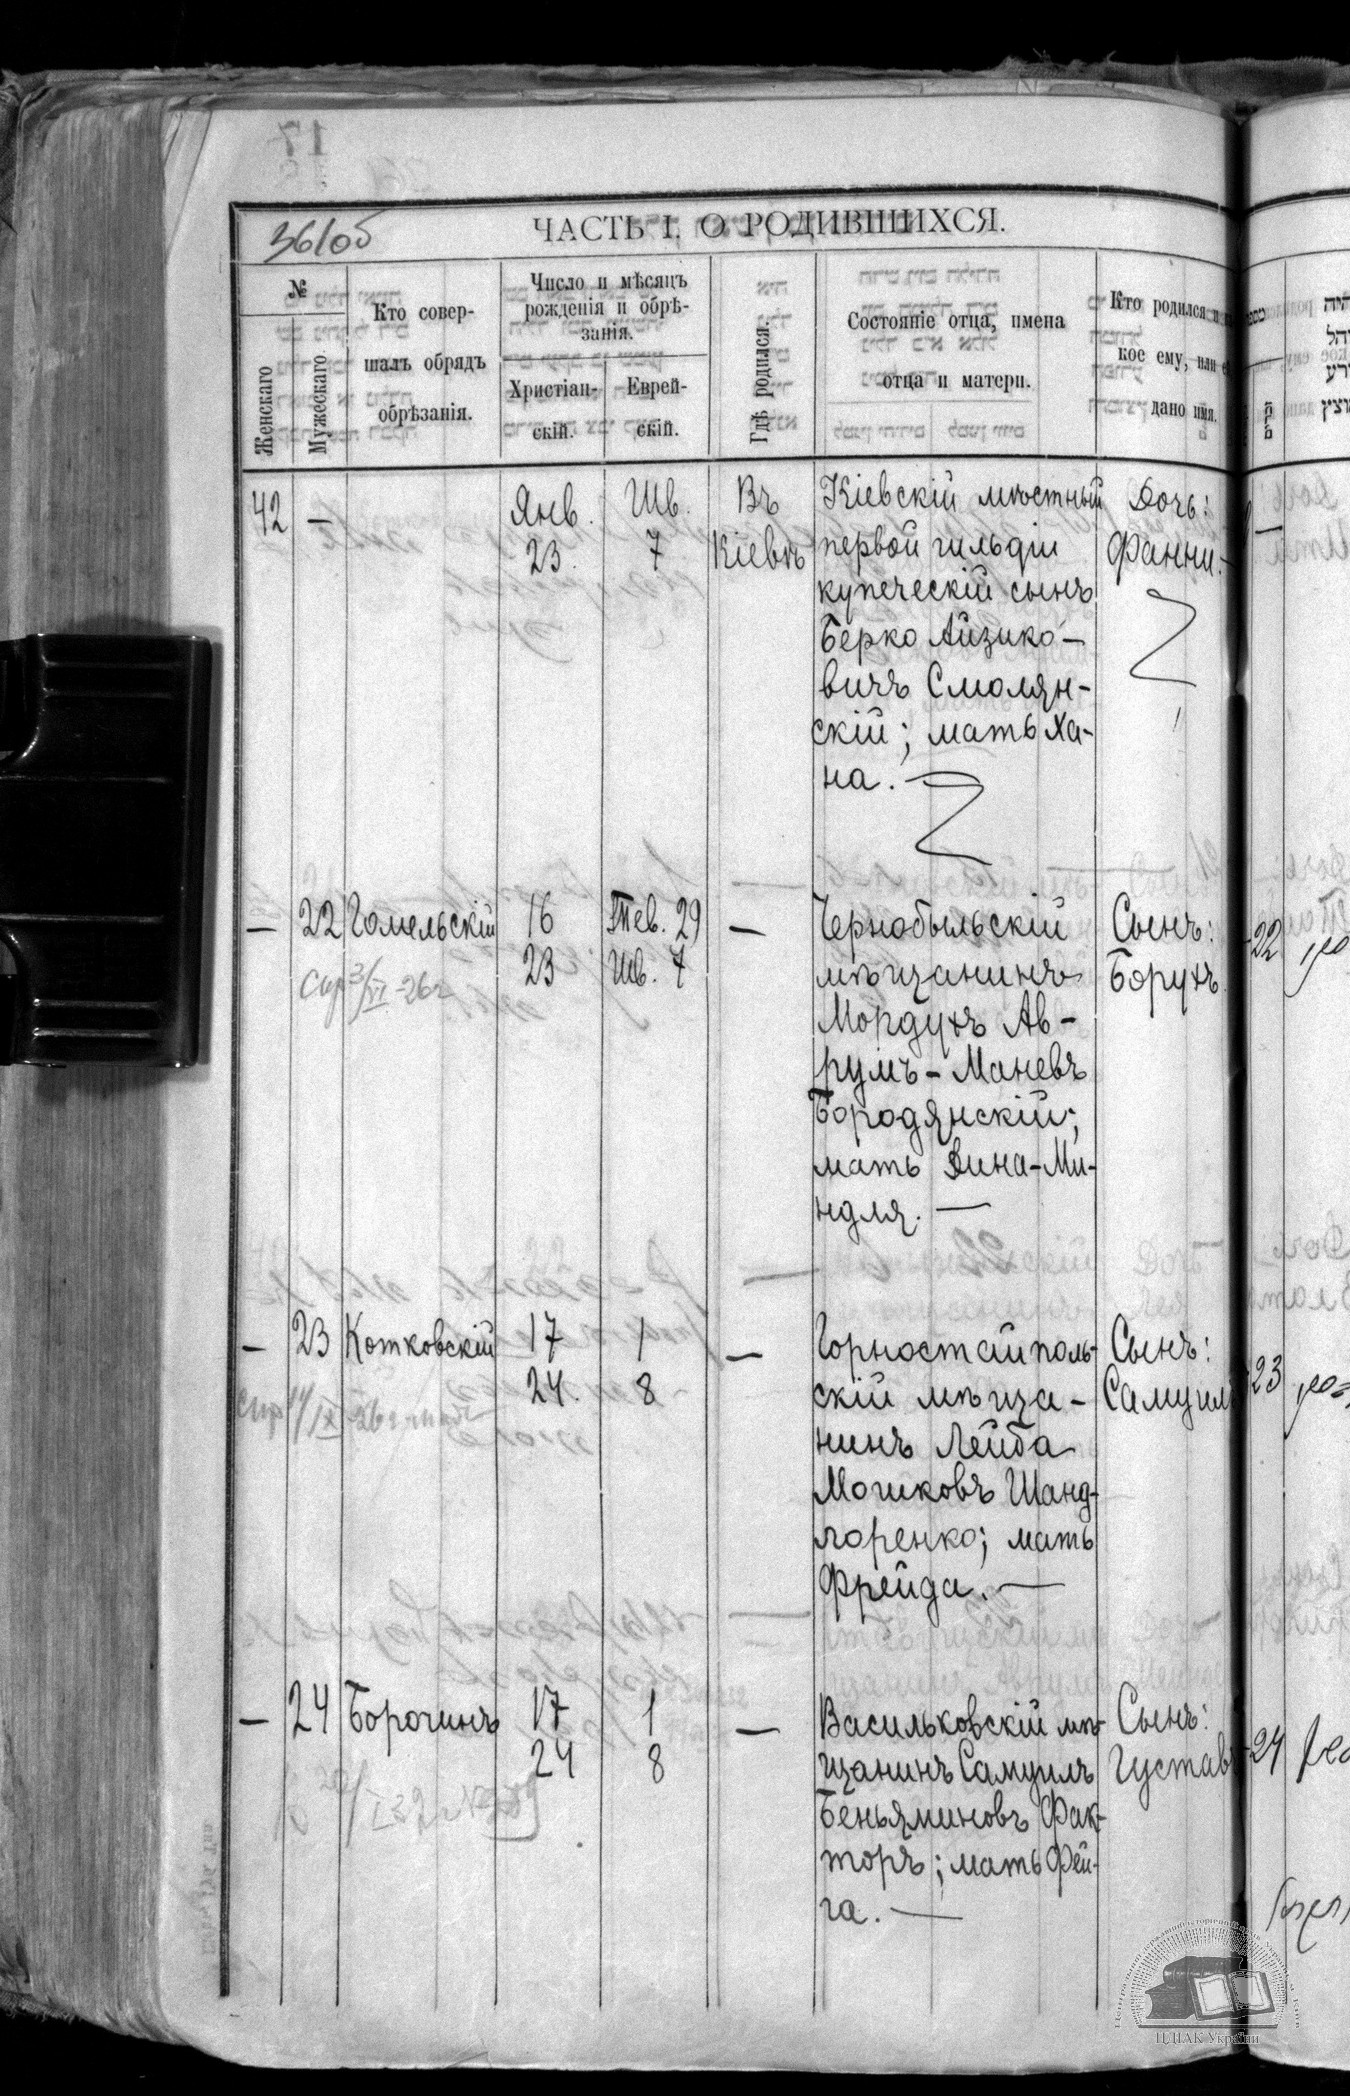 361об
ЧАСТЬ I. О РОДИВШИХСЯ.
№
Женскаго
Мужескаго.
Кто совер-
шалъ обрядъ
обрѣзанія.
Число и мѣсяцъ
рожденія и обрѣ-
занія.
Христіан-
скій.
Еврей-
скій.
Гдѣ родился.
Состояніе отца, имена
отца и матери.
Кто родился и
кое ему, или
дано имя.
42 — Янв. 23. Шв. 7 Въ Кіевѣ
Кіевскій мѣстный
первой гильдіи
купеческій сынъ
Берко Айзико-
вичъ Смолян-
скій; мать Ха-
на. —
Дочь:
Фанни. —
— 22 Гомельскій 16 Тев. 29 —
23 Шв. 7
Чернобыльскій
мѣщанинъ
Мордухъ Ав-
румъ-Маневъ
Бородянскій;
мать Дина-Ми-
ндля. —
Сынъ:
Борухъ.
22
— 23 Котковскій 17 1 —
24. 8
Горностайполь-
скій мѣща-
нинъ Лейба
Мошковъ Шанд-
горенко; мать
Фрейда. —
Сынъ:
Самуилъ
23
— 24 Борочинъ 17 1 —
24 8
Васильковскій мѣ-
щанинъ Самуилъ
Беньяминовъ Фак-
торъ; мать Фей-
га. —
Сынъ:
Густавъ
24
ЦДІАК України